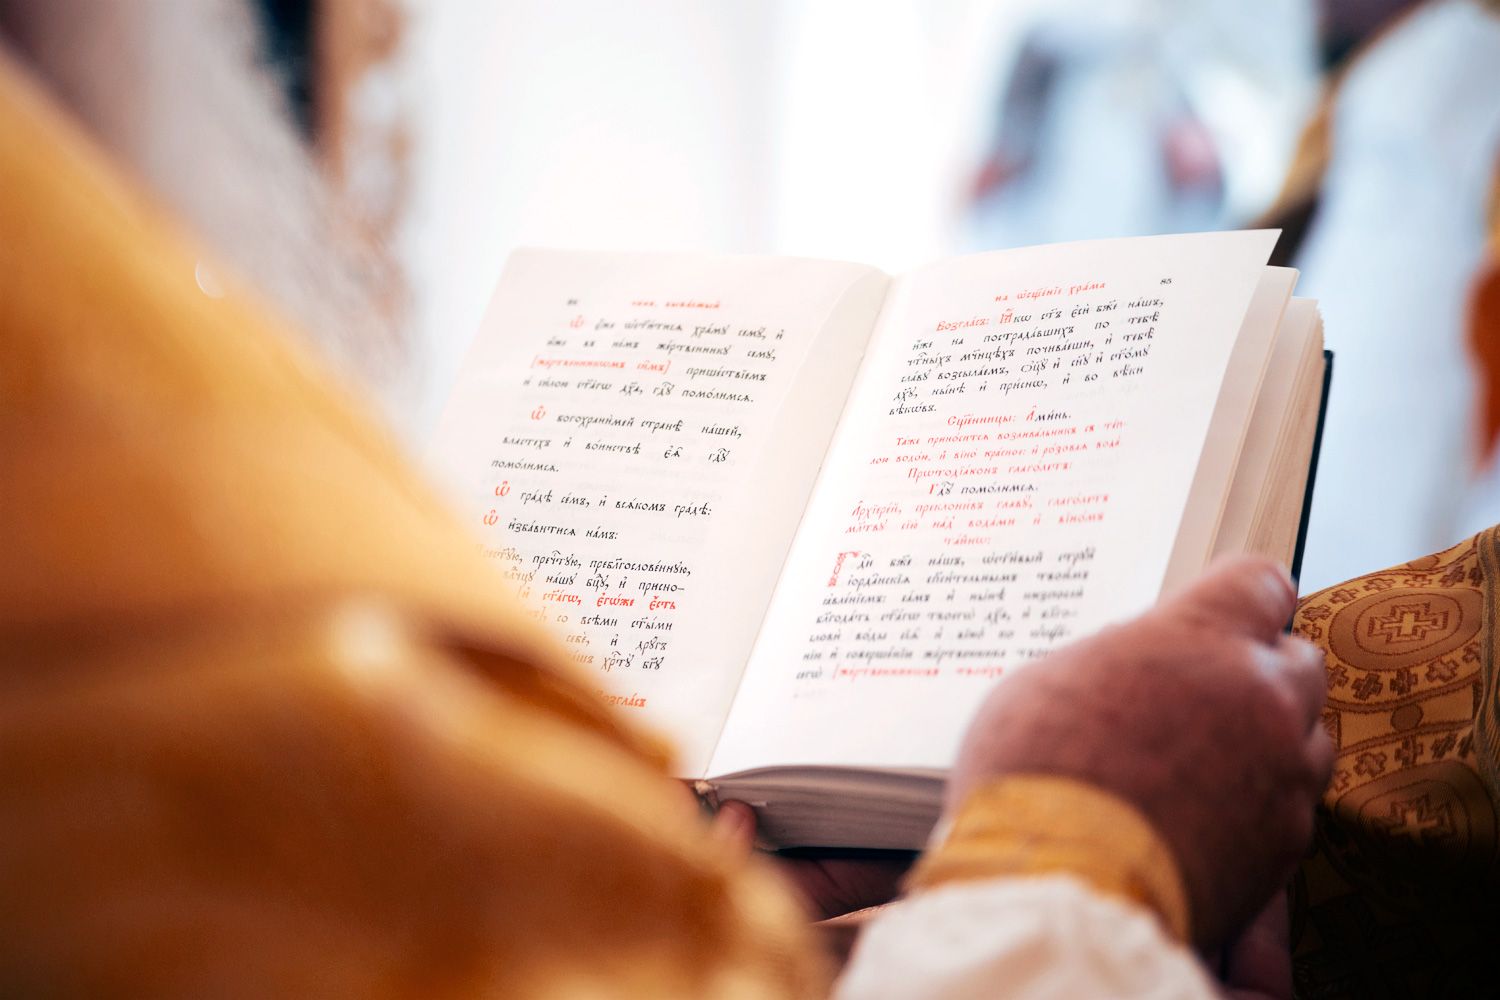 чинъ, бываемый
Ѡ҆ є҆́же ѡ҆ст҃и́тисѧ хра́мꙋ семꙋ̀, и҆
и҆̀же въ не́мъ же́ртвенникꙋ семꙋ̀,
[же́ртвенникѡмъ си̑мъ] прише́ствїемъ
и҆ си́лою ст҃а́гѡ дх҃а, гдⷭ҇ꙋ помо́лимсѧ.
Ѡ҆ богохрани́мей странѣ̀ на́шей,
власте́хъ и҆ во́инствѣ є҆ѧ̀ гдⷭ҇ꙋ
помо́лимсѧ.
Ѡ҆ гра́дѣ се́мъ, и҆ всѧ́комъ гра́дѣ:
Ѡ҆ и҆зба́витисѧ на́мъ:
Прест҃ꙋ́ю, пречⷭ҇тꙋю, преблгⷭ҇ове́ннꙋю,
влⷣчцꙋ на́шꙋ бцⷣꙋ, и҆ присно-
[и҆ ст҃а́гѡ, є҆гѡ́же є҆́сть
со всѣ́ми ст҃ы́ми
себѐ, и҆ дрꙋ́гъ
хрⷭ҇тꙋ̀ бг҃ꙋ
Возгла́съ
на ѡ҆сщ҃е́нїе хра́ма 85
Возгла́съ: Ꙗ҆́кѡ ст҃ъ є҆сѝ бж҃е на́шъ,
и҆́же на пострада́вшихъ по тебѣ̀
чтⷭ҇ны́хъ мч҃нцѣхъ почива́еши, и҆ тебѣ̀
сла́вꙋ возсыла́емъ, ѻ҆ц҃ꙋ̀ и҆ сн҃ꙋ и҆ ст҃о́мꙋ
дх҃ꙋ, ны́нѣ и҆ при́снѡ, и҆ во вѣ́ки
вѣкѡ́въ.
Сщ҃е́нницы: А҆ми́нь.
Та́же прино́ситсѧ возлива́льникъ съ те́п-
лою водо́ю, и҆ вїно̀ кра́сное: и҆ ро́зоваѧ вода̀
Прѡтодїа́конъ глаго́летъ:
Гдⷭ҇ꙋ помо́лимсѧ.
А҆рхїере́й, прекло́нивъ главꙋ̀, глаго́летъ
мл҃твꙋ сїю̀ над̾ вода́ми и҆ вїно́мъ
та́йнѡ:
Гдⷭ҇и бж҃е на́шъ, ѡ҆ст҃и́вый стрꙋи̑
і҆ѻрда̑нскїѧ сп҃си́тельнымъ твои́мъ
ꙗ҆вле́нїемъ: са́мъ и҆ ны́нѣ низпослѝ
блгⷣть ст҃а́гѡ твоегѡ̀ дх҃а, и҆ блгⷭ҇о-
словѝ во́дꙋ сїю̀ и҆ вїно̀ ко ѡ҆сщ҃е́-
нїю и҆ соверше́нїю же́ртвенника
сегѡ̀ [же́ртвенникѡвъ